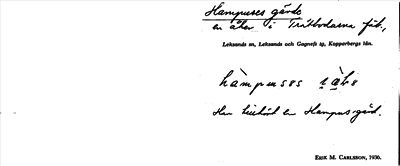 Hampuses gärde
en åker i Trätbodarna fäb.,
Leksands sn, Leksands och Gagnefs tg, Kopparbergs län.
hàmpuses
Han en Hampus-gård.
ERIK M. CARLSSON, 1936.